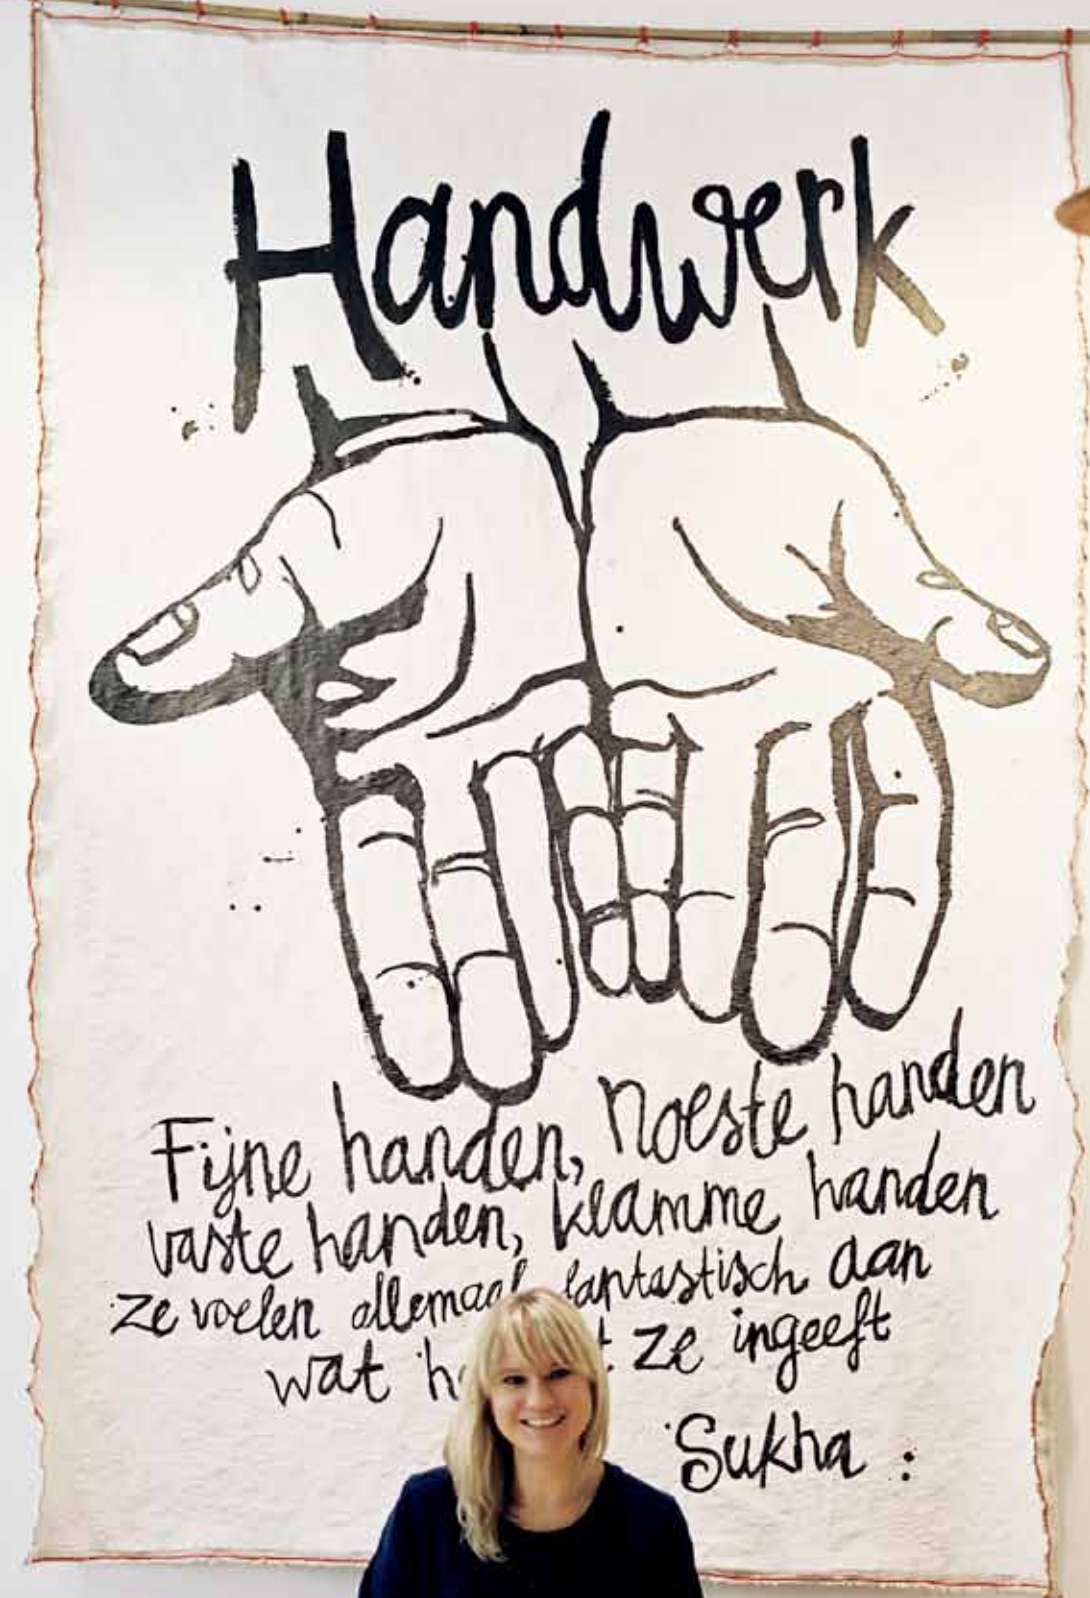 Handwerk
Fijne handen, noeste handen
vaste handen, klamme handen
ze voelen allemaal fantastisch aan
wat ze ingeeft
Sukha